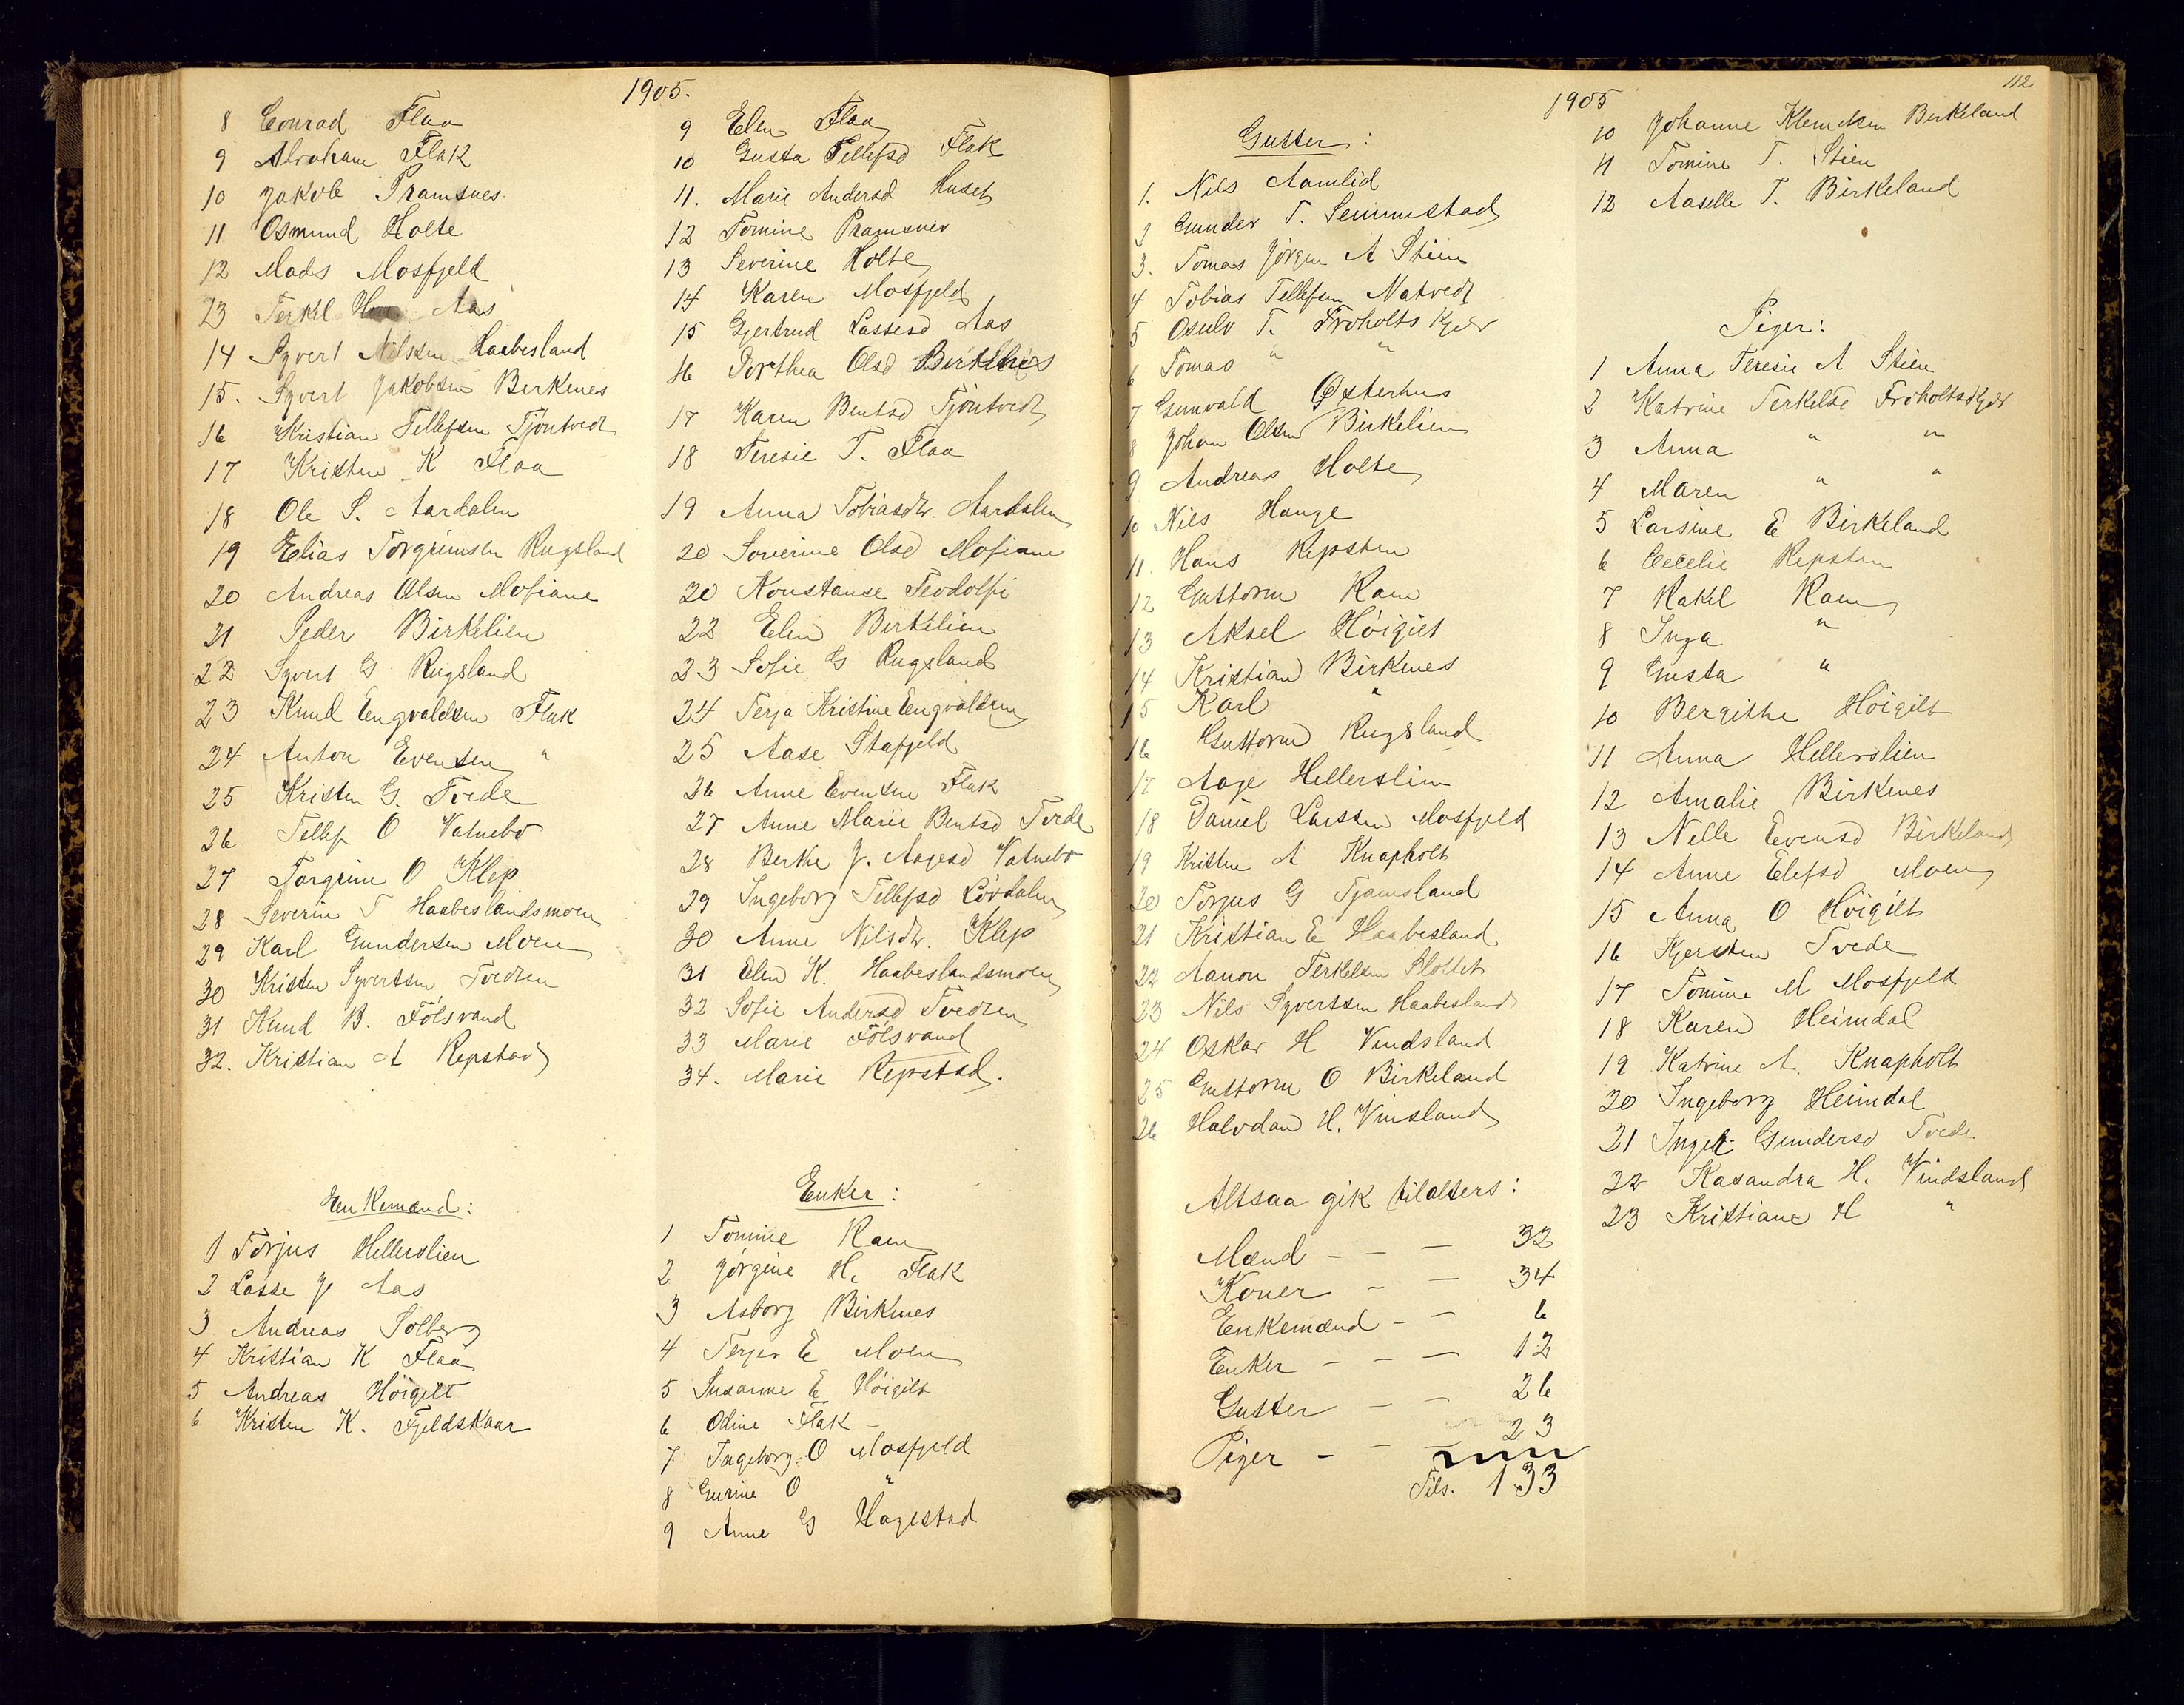 1905.
8 Conrad Flaa
9 Abraham Flak
10 Jakob Pramsnes
11 Osmund Holte
12 Mads Mosfjeld
23 Terkel Aas
14 Syvert Nilsen Haabesland
15. Syvert Jakobsen Berkenes
16 Kristian Tellefsen Tjöntvedt
17 Kristen K Flaa
18 Ole S. Aardalen
19 Elias Torgrimsen Rugsland
20 Andreas Olsen Mofiane
21 Peder Birkelien
22 Syvert G Rugsland
23 Knud Engvaldsen Flak
24 Anton Evensen "
25 Kristen G. Tvede
26 Tellef O Vatnebö
27 Torgrim O Klep
28 Severin T Haabeslandsmoen
29 Karl Gundersen Moen
30 Kristen Syvertsen Tvedsen
31 Knud B. Fölsvand
32. Kristian A Repstad
Enkemænd:
1 Torjus Hellerslien
2 Lasse J. Aas
3 Andreas Solberg
4 Kristian K Flaa
5 Andreas Höigilt
6 Kristen K. Fjeldskaar
9 Elen Flaa
10 Gusta Tellefsd Flak
11. Marie Andersd Huset
12 Tomine Pramsnes
13 Severine Holte
14 Karen Mosfjeld
15 Gjertrud Lassesd Aas
16 Dorthea Olsd Birkenes
17 Karen Bentsd Tjöntvedt
18 Teresie T. Flaa
19 Anna Tobiasdtr. Aardalen
20 Severine Olsd Mofiane
20 Konstanse Teodolfi
22 Elen Birkelien
23 Sofie G Rugsland
24 Terja Kristine Engvaldsen
25 Aase Stapfjeld
26 Anne Evensen Flak
27 Anne Marie Bentsd Tvede
28 Berthe J. Aagesd Vatnebö
29 Ingeborg Tellefsd Lövdalen
30 Anne Nilsdtr. Klep
31 Elen K. Haabeslandsmoen
32 Sofie Andersd Tvedsen
33 Marie Fölsvand
34. Marie Repstad.
Enker:
1 Tomine Ram
2 Jörgine H. Flak
3 Asborg Birkenes
4 Terjer E Moen
5 Susanne E Höigilt
6 Odine Flak
7 Ingeborg O Mosfjeld
8 Gurine O "
9 Anne G Hagestad
112
1905
Gutter:
1. Nils Aamlid
2 Gunder T. Semmestad
3. Tomas Jörgen A Stien
4 Tobias Tellefsen Natvedt
5 Osulv T. Froholtskjær
6 Tomas " "
7 Gunvald Østerhus
8 Johan Olsen Birkelien
9 Andreas Holte
10 Nils Hauge
11. Hans Repsten
12 Guttorm Ram
13 Aksel Höigilt
14 Kristian Birkenes
15 Karl "
16 Guttorm Rugsland
17 Aage Hellerslien
18 Daniel Larssen Mosfjeld
19 Kristen A Knapholt
20 Torjus G Tjomsland
21 Kristian E Haabesland
22 Aanon Terkelsen Slottet
23 Nils Syvertsen Haabesland
24 Oskar H Vindsland
25 Guttorm O Birkeland
26 Halvdan H. Vinsland
Altsaa gik tilalters:
Mænd - - - 32
Koner - - 34
Enkemænd - - 6
Enker - - - 12
Gutter - - 26
Piger - - - 23
Tils. 133
10 Johanne Klemetsen Birkeland
11 Tomine T. Stien
12 Aaselle T. Birkeland
Piger:
1 Anna Teresie A Stien
2 Katrine Terkelsd Froholtskjær
3 Anna " "
4 Maren " "
5 Larsine E Birkeland
6 Cecelie Repsten
7 Rakel Ram
8 Inga "
9 Gusta "
10 Bergithe Höigilt
11 Anna Hellerslien
12 Amalie Birkenes
13 Nelle Evensd Birkeland
14 Anne Elefsd Moen
15 Anna O Höigilt
16 Kjersten Tvede
17 Tomine M Mosfjeld
18 Karen Heimdal
19 Katrine A. Knapholt
20 Ingeborg Heimdal
21 Ingeb. Gundersd Tvede
22 Kasandra H. Vindsland
23 Kristiane H "